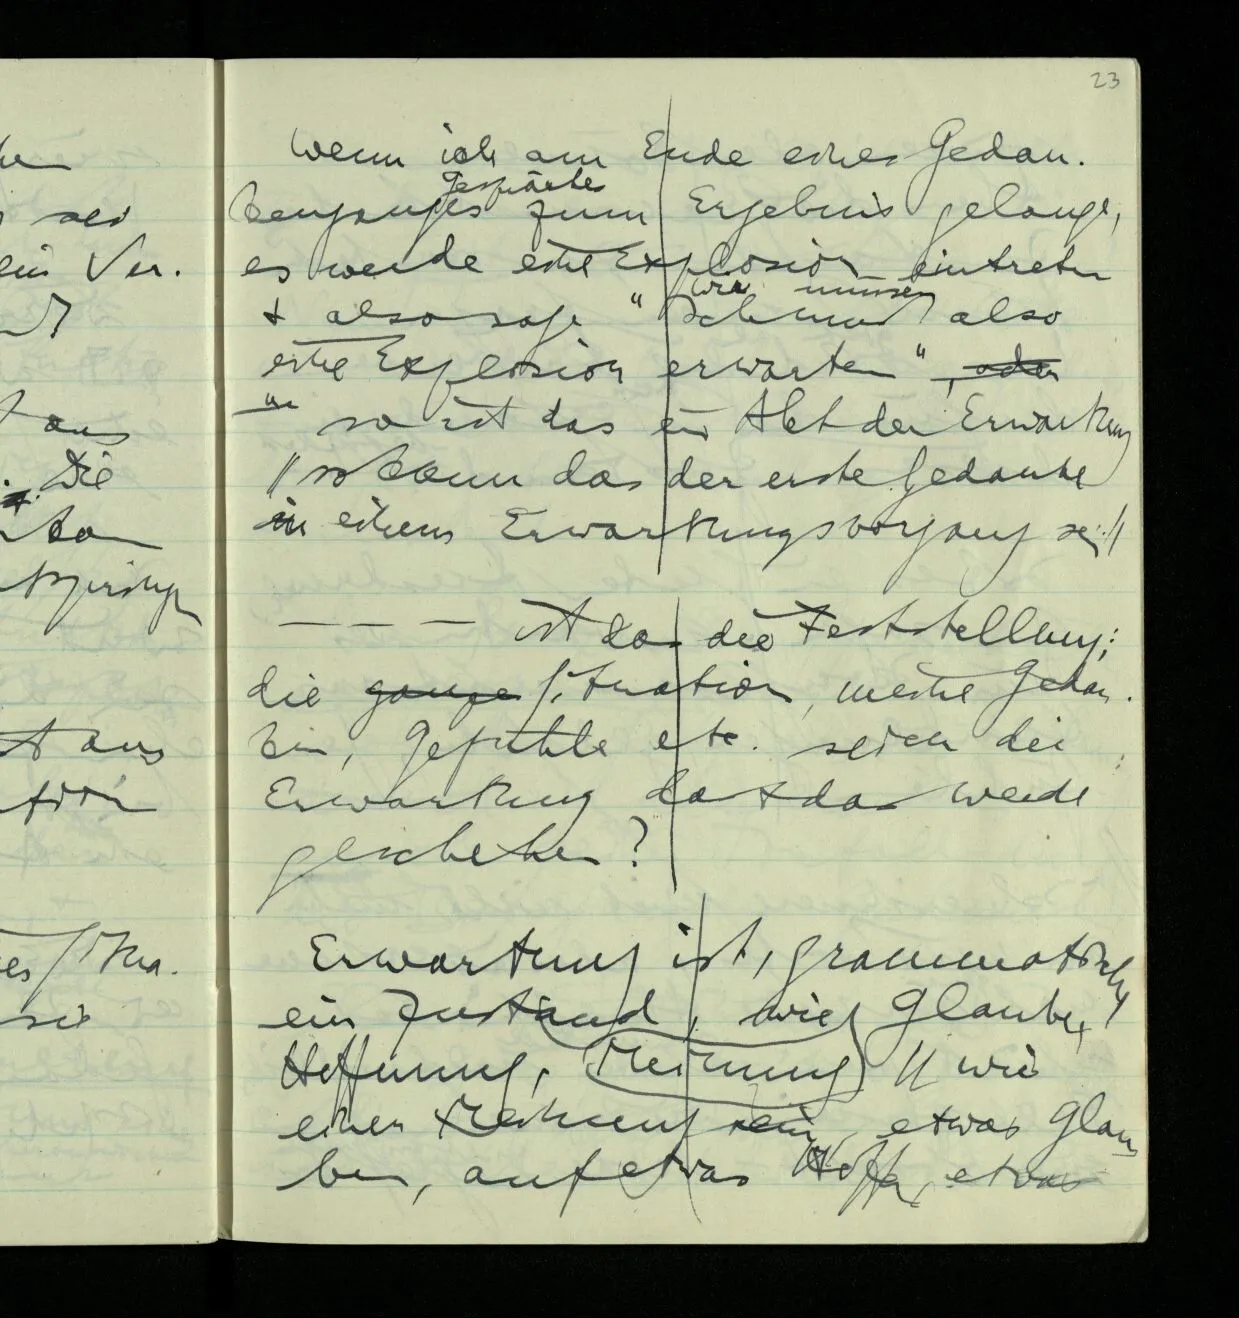 23
Wenn ich am Ende eines Gedan.
Gespräches
kenganges zum Ergebnis gelange,
es werde eine Explosion eintreten
wir müssen
& also sage "Ich muß also
eine Explosion erwarten", oder
so ist das ein Akt der Erwartung
// so kann das der erste Gedanke
in einem Erwartungsvorgang sein //
– – – ist das die Feststellung;
die ganze Situation, meine Gedan.
ken, Gefühle etc. seien die
Erwartung das & das werde
geschehen?
Erwartung ist, grammatisch,
ein Zustand, wie Glaube,
Hoffnung, Meinung // wie
einer Meinung sein, etwas glau
ben, auf etwas hoffen, etwas
hen
sei
ein Ver.
aus
. Die
t aus
ation
es Situa.
sie